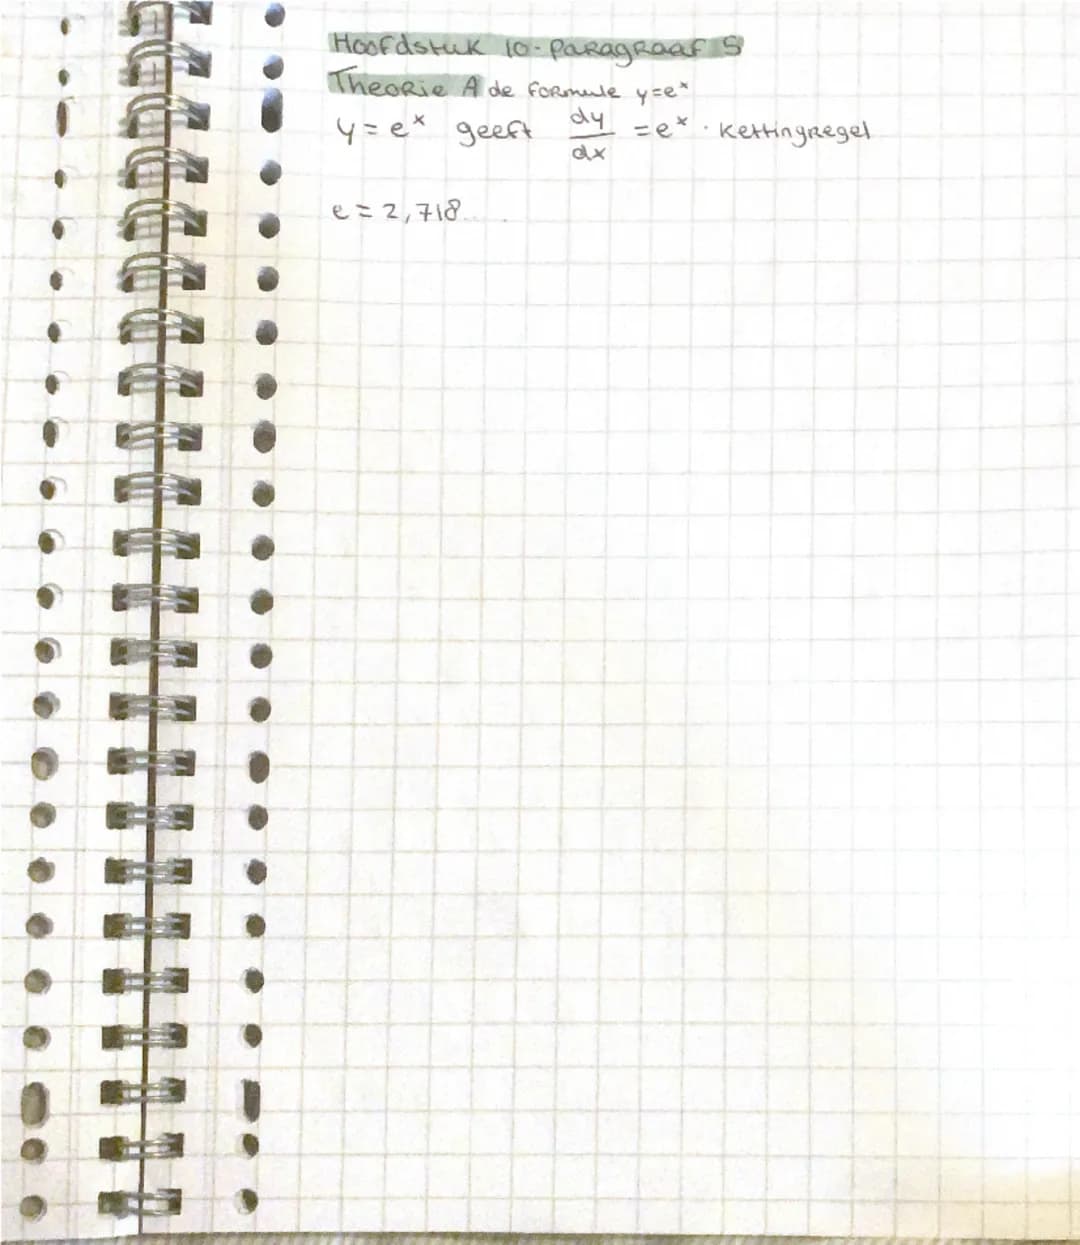 Hoofdstuk 10 - Paragraaf 5
Theorie A de formule y=eˣ
y = eˣ geeft dy/dx = eˣ · kettingregel
e = 2,718.....